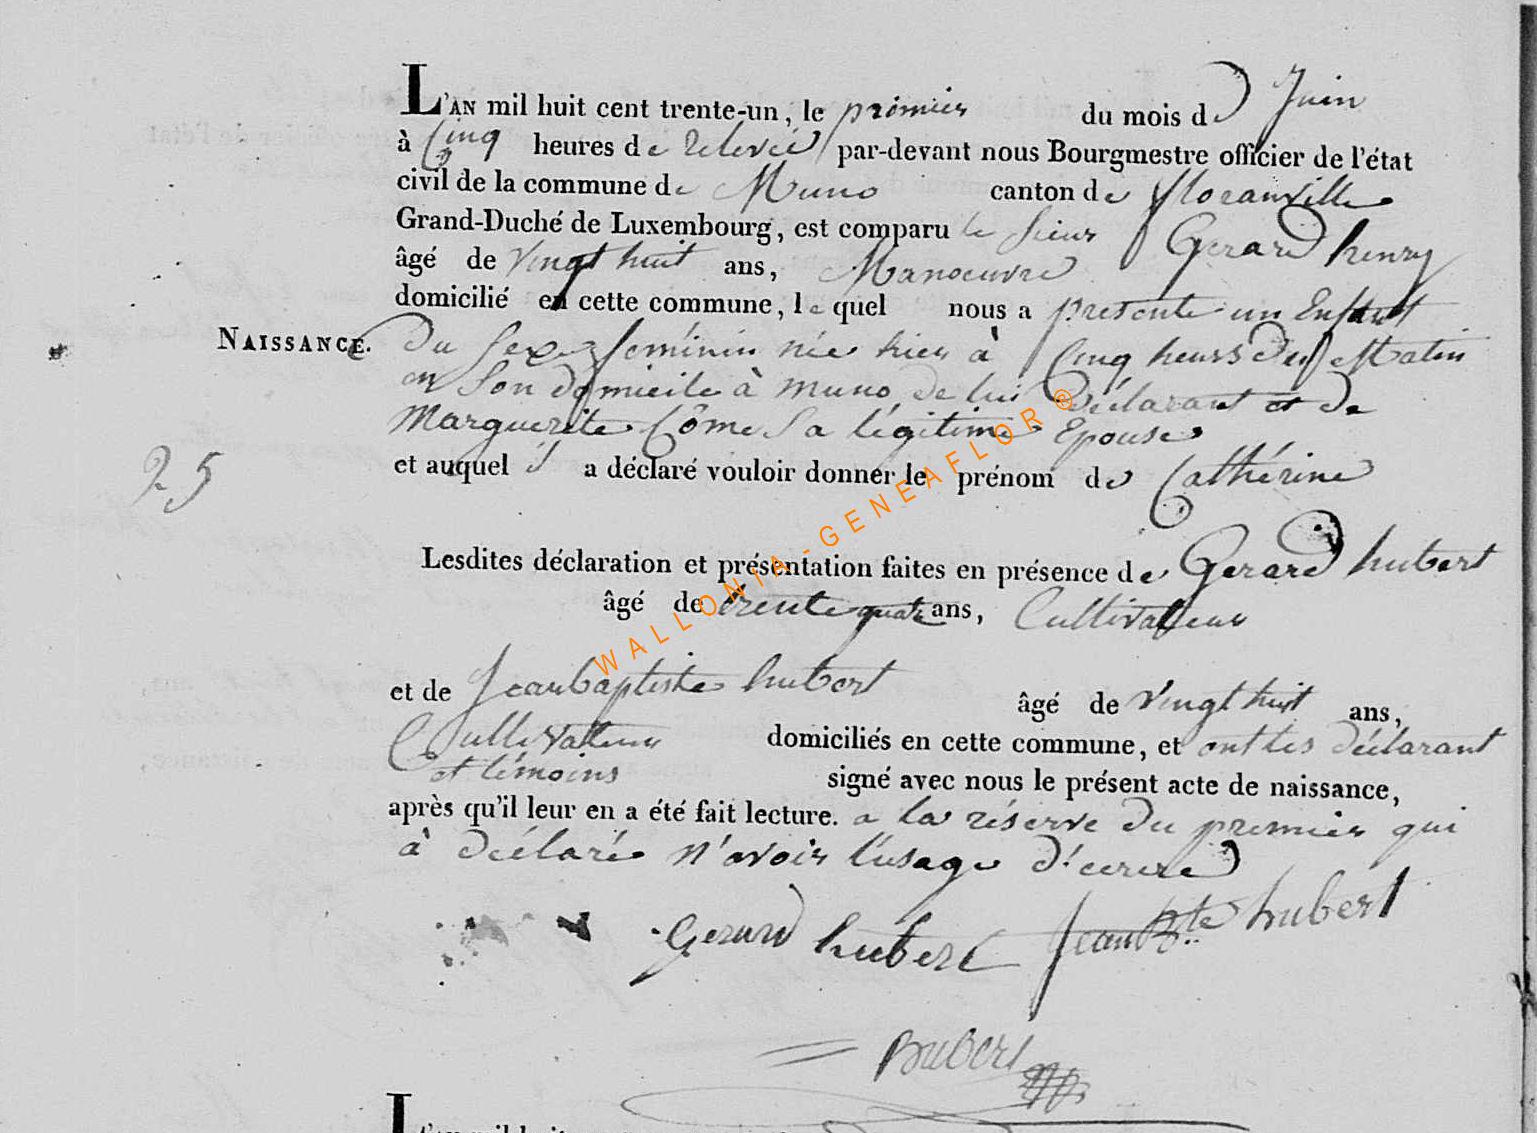 L'AN mil huit cent trente-un, le premier du mois de Juin
à Cinq heures de relevée par-devant nous Bourgmestre officier de l'état
civil de la commune de Muno canton de floranville
Grand-Duché de Luxembourg, est comparu le sieur Gerard henry
âgé de Vingt huit ans, Manoeuvre
domicilié en cette commune, lequel nous a presente un Enfant
NAISSANCE.
Du sexe feminin née hier à Cinq heurs du Matin
en son domicile à muno, de lui Déclarant et de
Marguerite Côme Sa légitime Epouse
25
et auquel il a déclaré vouloir donner le prénom de Cathérine
Lesdites déclaration et présentation faites en présence de Gerard hubert
âgé de trente quatre ans, Cultivateur
et de Jean baptiste hubert âgé de Vingt huit ans,
Cultivateur domiciliés en cette commune, et ont les déclarant
et témoins signé avec nous le présent acte de naissance,
après qu'il leur en a été fait lecture. a la réserve du premier qui
à déclaré n'avoir l'usage d'ecrire
Gerard hubert Jean Bte hubert
WALLONIA-GENEAFLOR®